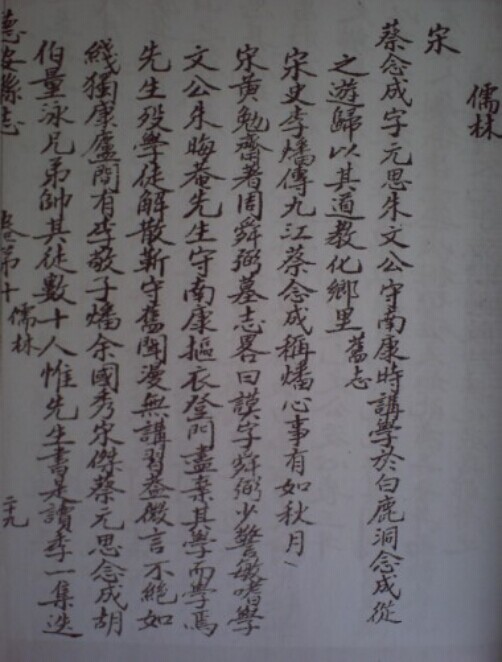 儒林
宋
蔡念成字元思朱文公守南康時講學於白鹿洞念成從
之遊歸以其道教化鄉里舊志
宋史李燔傳九江蔡念成稱燔心事有如秋月
宋黃勉齋著周舜弼墓志畧曰謨字舜弼少警敏嗜學
文公朱晦菴先生守南康摳衣登門盡棄其學而學焉
先生歿學徒解散靳守舊聞漫無講習益微言不絕如
綫獨康廬間有李敬子燔余國秀宋傑蔡元思念成胡
伯量泳兄弟帥其徒數十人惟先生書是讀季一集迭
德安縣志 卷第十 儒林 二十九